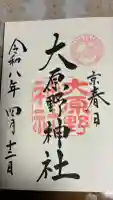 京春日
大原野神社
大原野神社
令和八年四月十二日